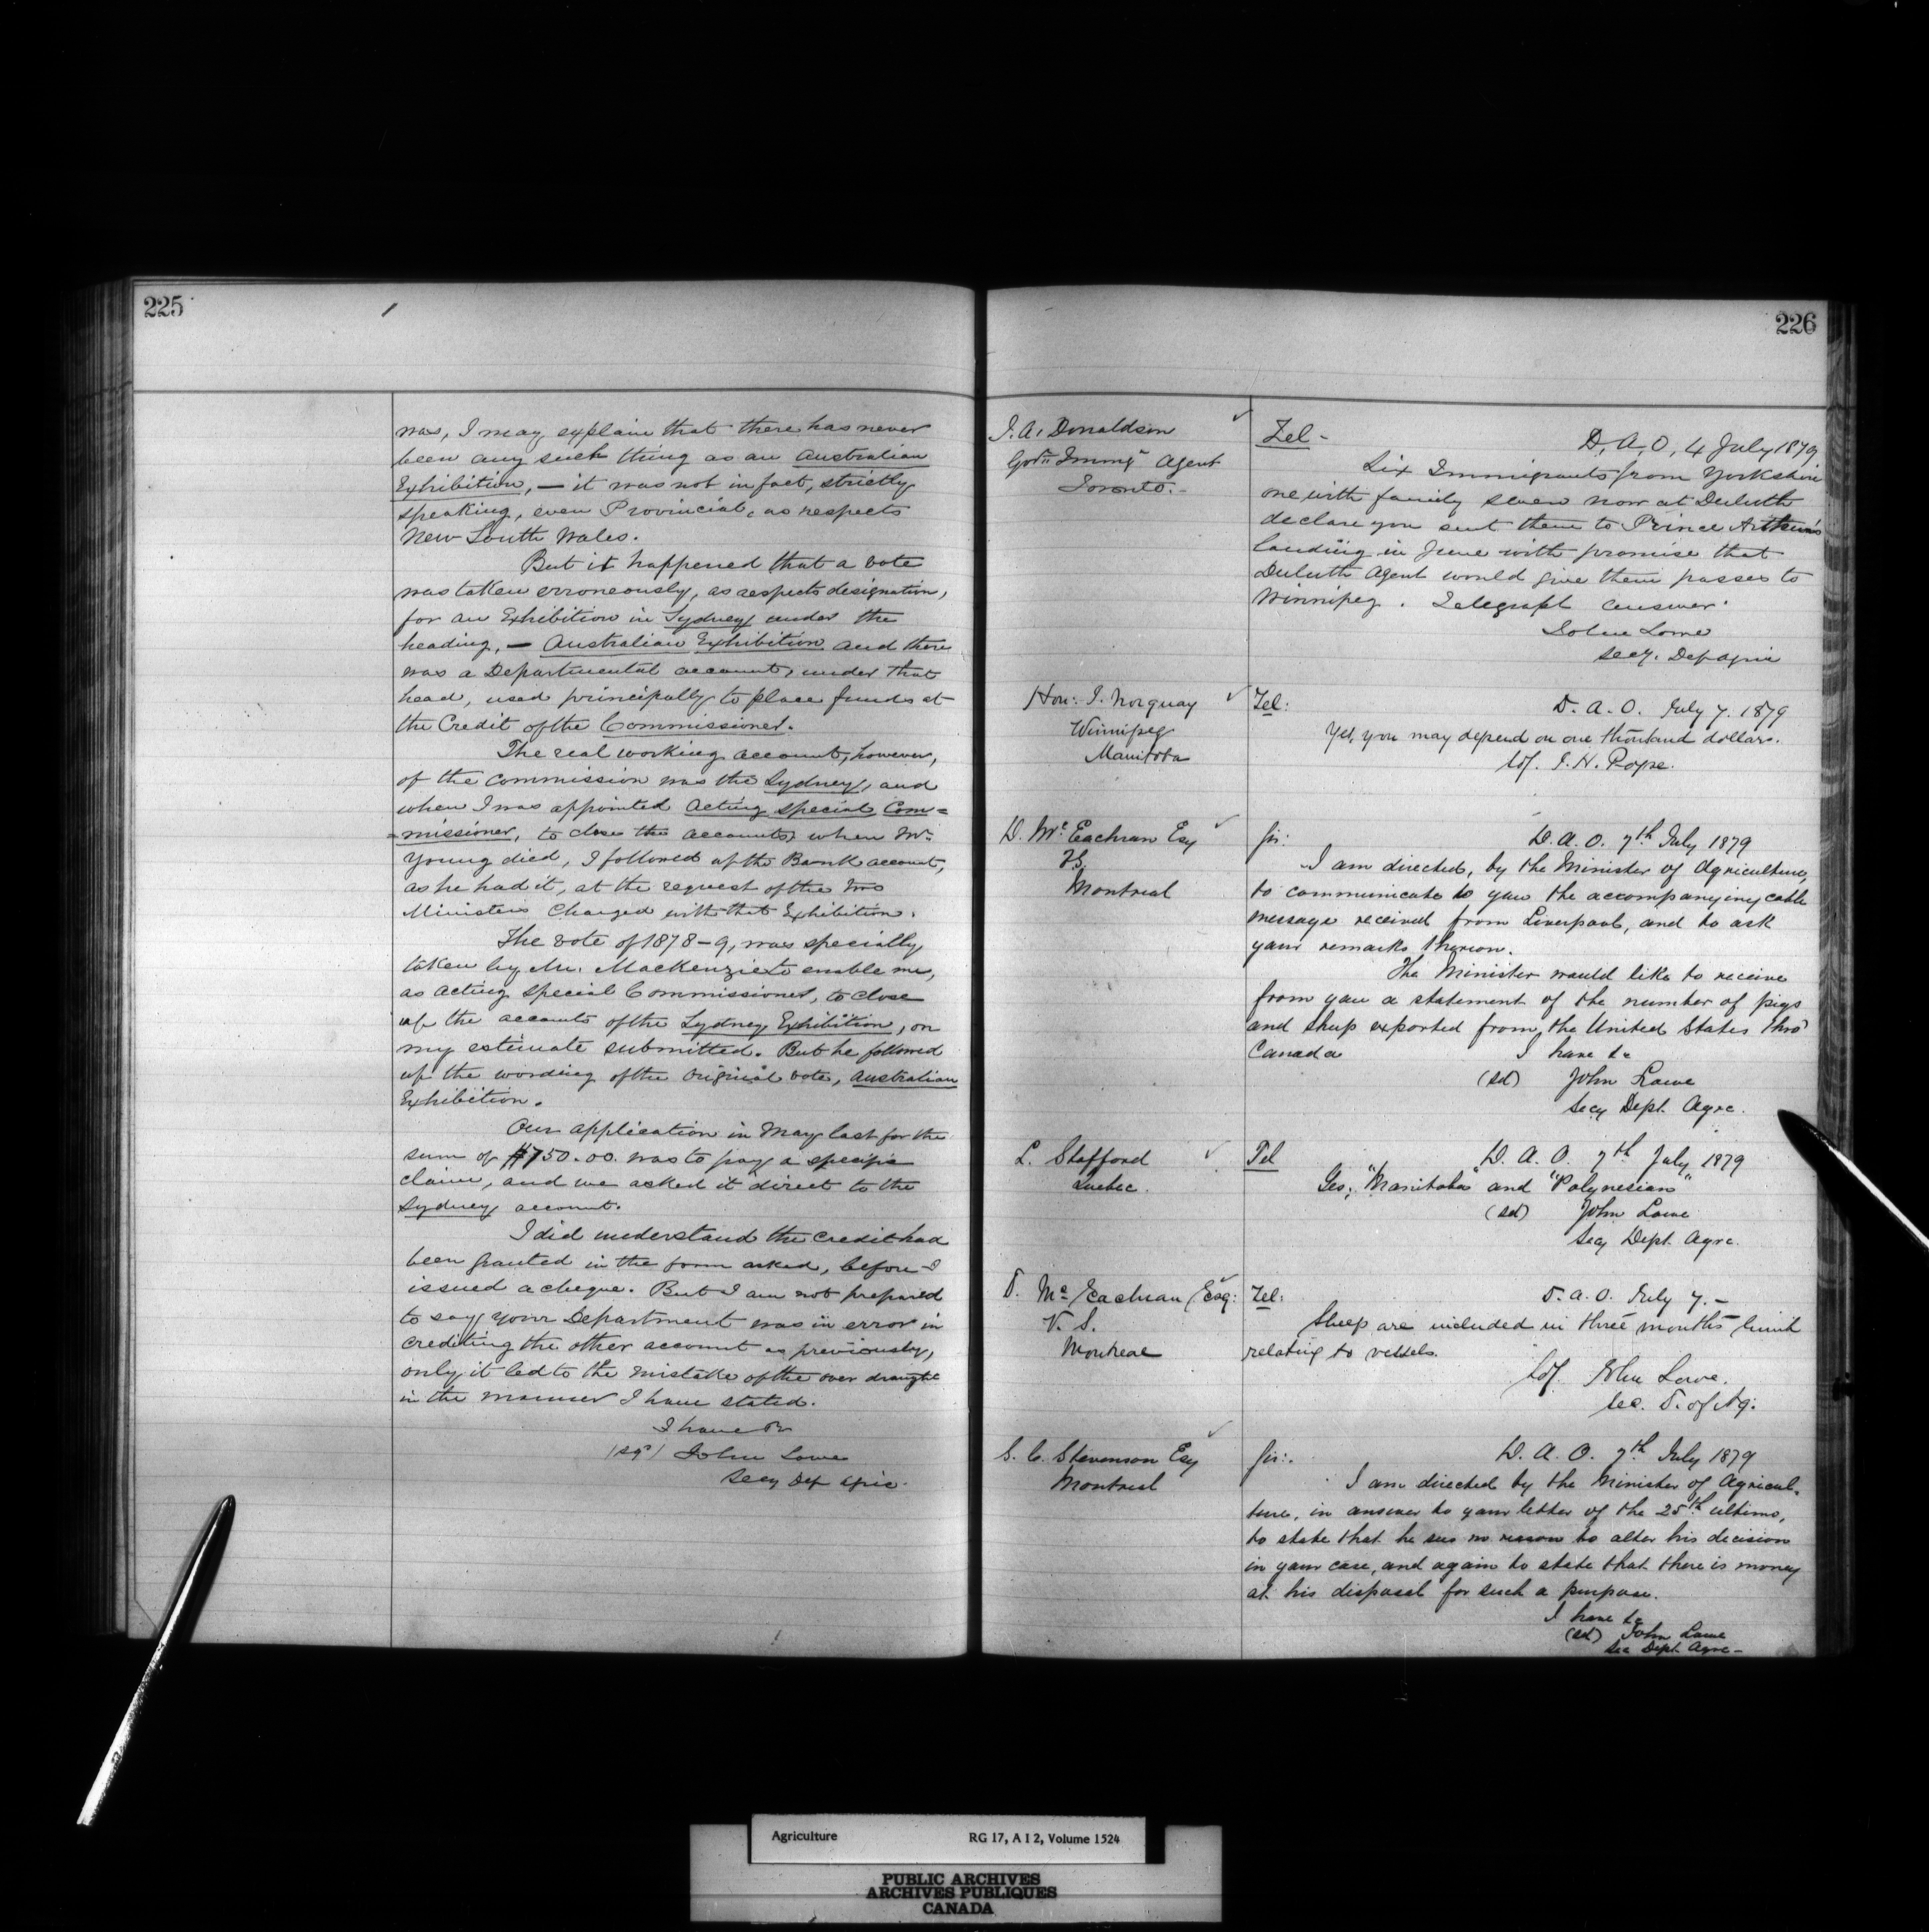 225
was, I may explain that there has never
been any such thing as an Australian
Exhibition, — it was not in fact, strictly
speaking, even Provincial, as respects
New South Wales.
But it happened that a vote
was taken erroneously, as respects designation,
for an Exhibition in Sydney under the
heading, — Australian Exhibition and there
was a Departmental account, under that
head, used principally to place funds at
the Credit of the Commissioner.
The real working account, however,
of the Commission was the Sydney, and
when I was appointed Acting Special Com=
=missioner, to close the accounts, when Mr.
Young died, I followed up the Bank account,
as he had it, at the request of the two
Ministers Charged with that Exhibition.
The vote of 1878-9, was specially
taken by Mr. Mackenzie to enable me,
as Acting Special Commissioner, to close
up the accounts of the Sydney Exhibition, on
my estimate submitted. But he followed
up the wording of the original vote, Australian
Exhibition.
Our application in May last for the
sum of $750.00 was to pay a specific
claim, and we asked it direct to the
Sydney account.
I did understand the credit had
been granted in the form asked, before I
issued a cheque. But I am not prepared
to say your Department was in error in
crediting the other account as previously,
only it led to the mistake of the over draught
in the manner I have stated.
I have &c
(sgd) John Lowe
Secy Dep Agric.
226
J. A. Donaldson
Govt. Immig. Agent
Toronto.-
Tel- D. A. O, 4 July 1879
Six Immigrants from Yorkshire
one with family seven now at Duluth
declare you sent them to Prince Arthur's
landing in June with promise that
Duluth Agent would give them passes to
Winnipeg. Telegraph answer.
John Lowe
Secy. Dep Agric
Hon: J. Norquay
Winnipeg
Manitoba
Tel: D. A. O. July 7. 1879
Yes, you may depend on one thousand dollars.
Sd/. J. H. Pope.
D. McEachran Esq
V.S.
Montreal
Sir: D. A. O. 7th July 1879
I am directed, by the Minister of Agriculture,
to communicate to you the accompanying cable
message received from Liverpool, and to ask
your remarks thereon.
The Minister would like to receive
from you a statement of the number of pigs
and sheep exported from the United States thro'
Canada I have &c
(Sd) John Lowe
Secy Dept. Agre.
L. Stafford
Quebec.
Tel D. A. O. 7th July 1879
Yes, "Manitoba" and "Polynesian"
(Sd) John Lowe
Secy Dept. Agre.
D. McEachran Esq:
V. S.
Montreal
Tel: D. A. O. July 7.-
Sheep are included in three months limit
relating to vessels.
Sd/. John Lowe.
Sec. D. of Ag.
S. C. Stevenson Esq
Montreal
Sir:. D. A. O. 7th July 1879
I am directed by the Minister of Agricul-
ture, in answer to your letter of the 25th ultimo,
to state that he sees no reason to alter his decision
in your case, and again to state that there is money
at his disposal for such a purpose.
I have &c
(Sd) John Lowe
Sec Dept. Agre-
Agriculture RG 17, A I 2, Volume 1524
PUBLIC ARCHIVES
ARCHIVES PUBLIQUES
CANADA